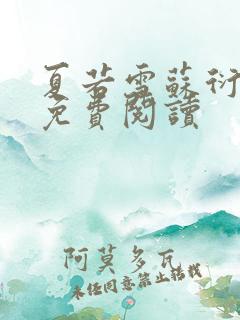 夏若雪蘇衍
免費閱讀
阿莫多瓦
未经同意禁止转载